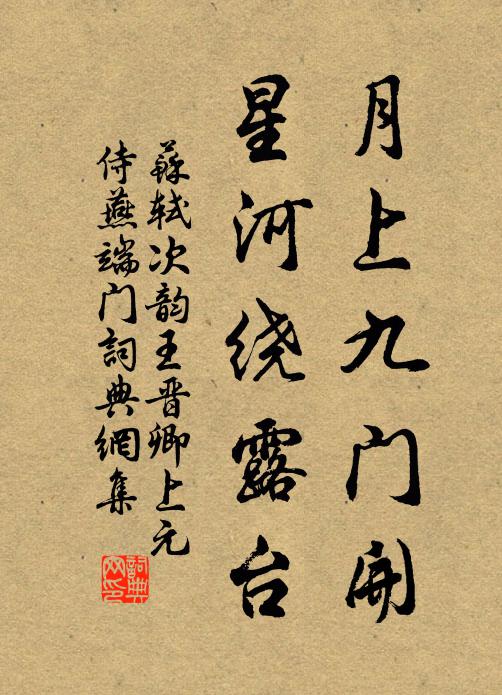 月上九门開
星河绕露台
蘇轼次韵王晋卿上元
侍燕端门詞典網集
詞典网印